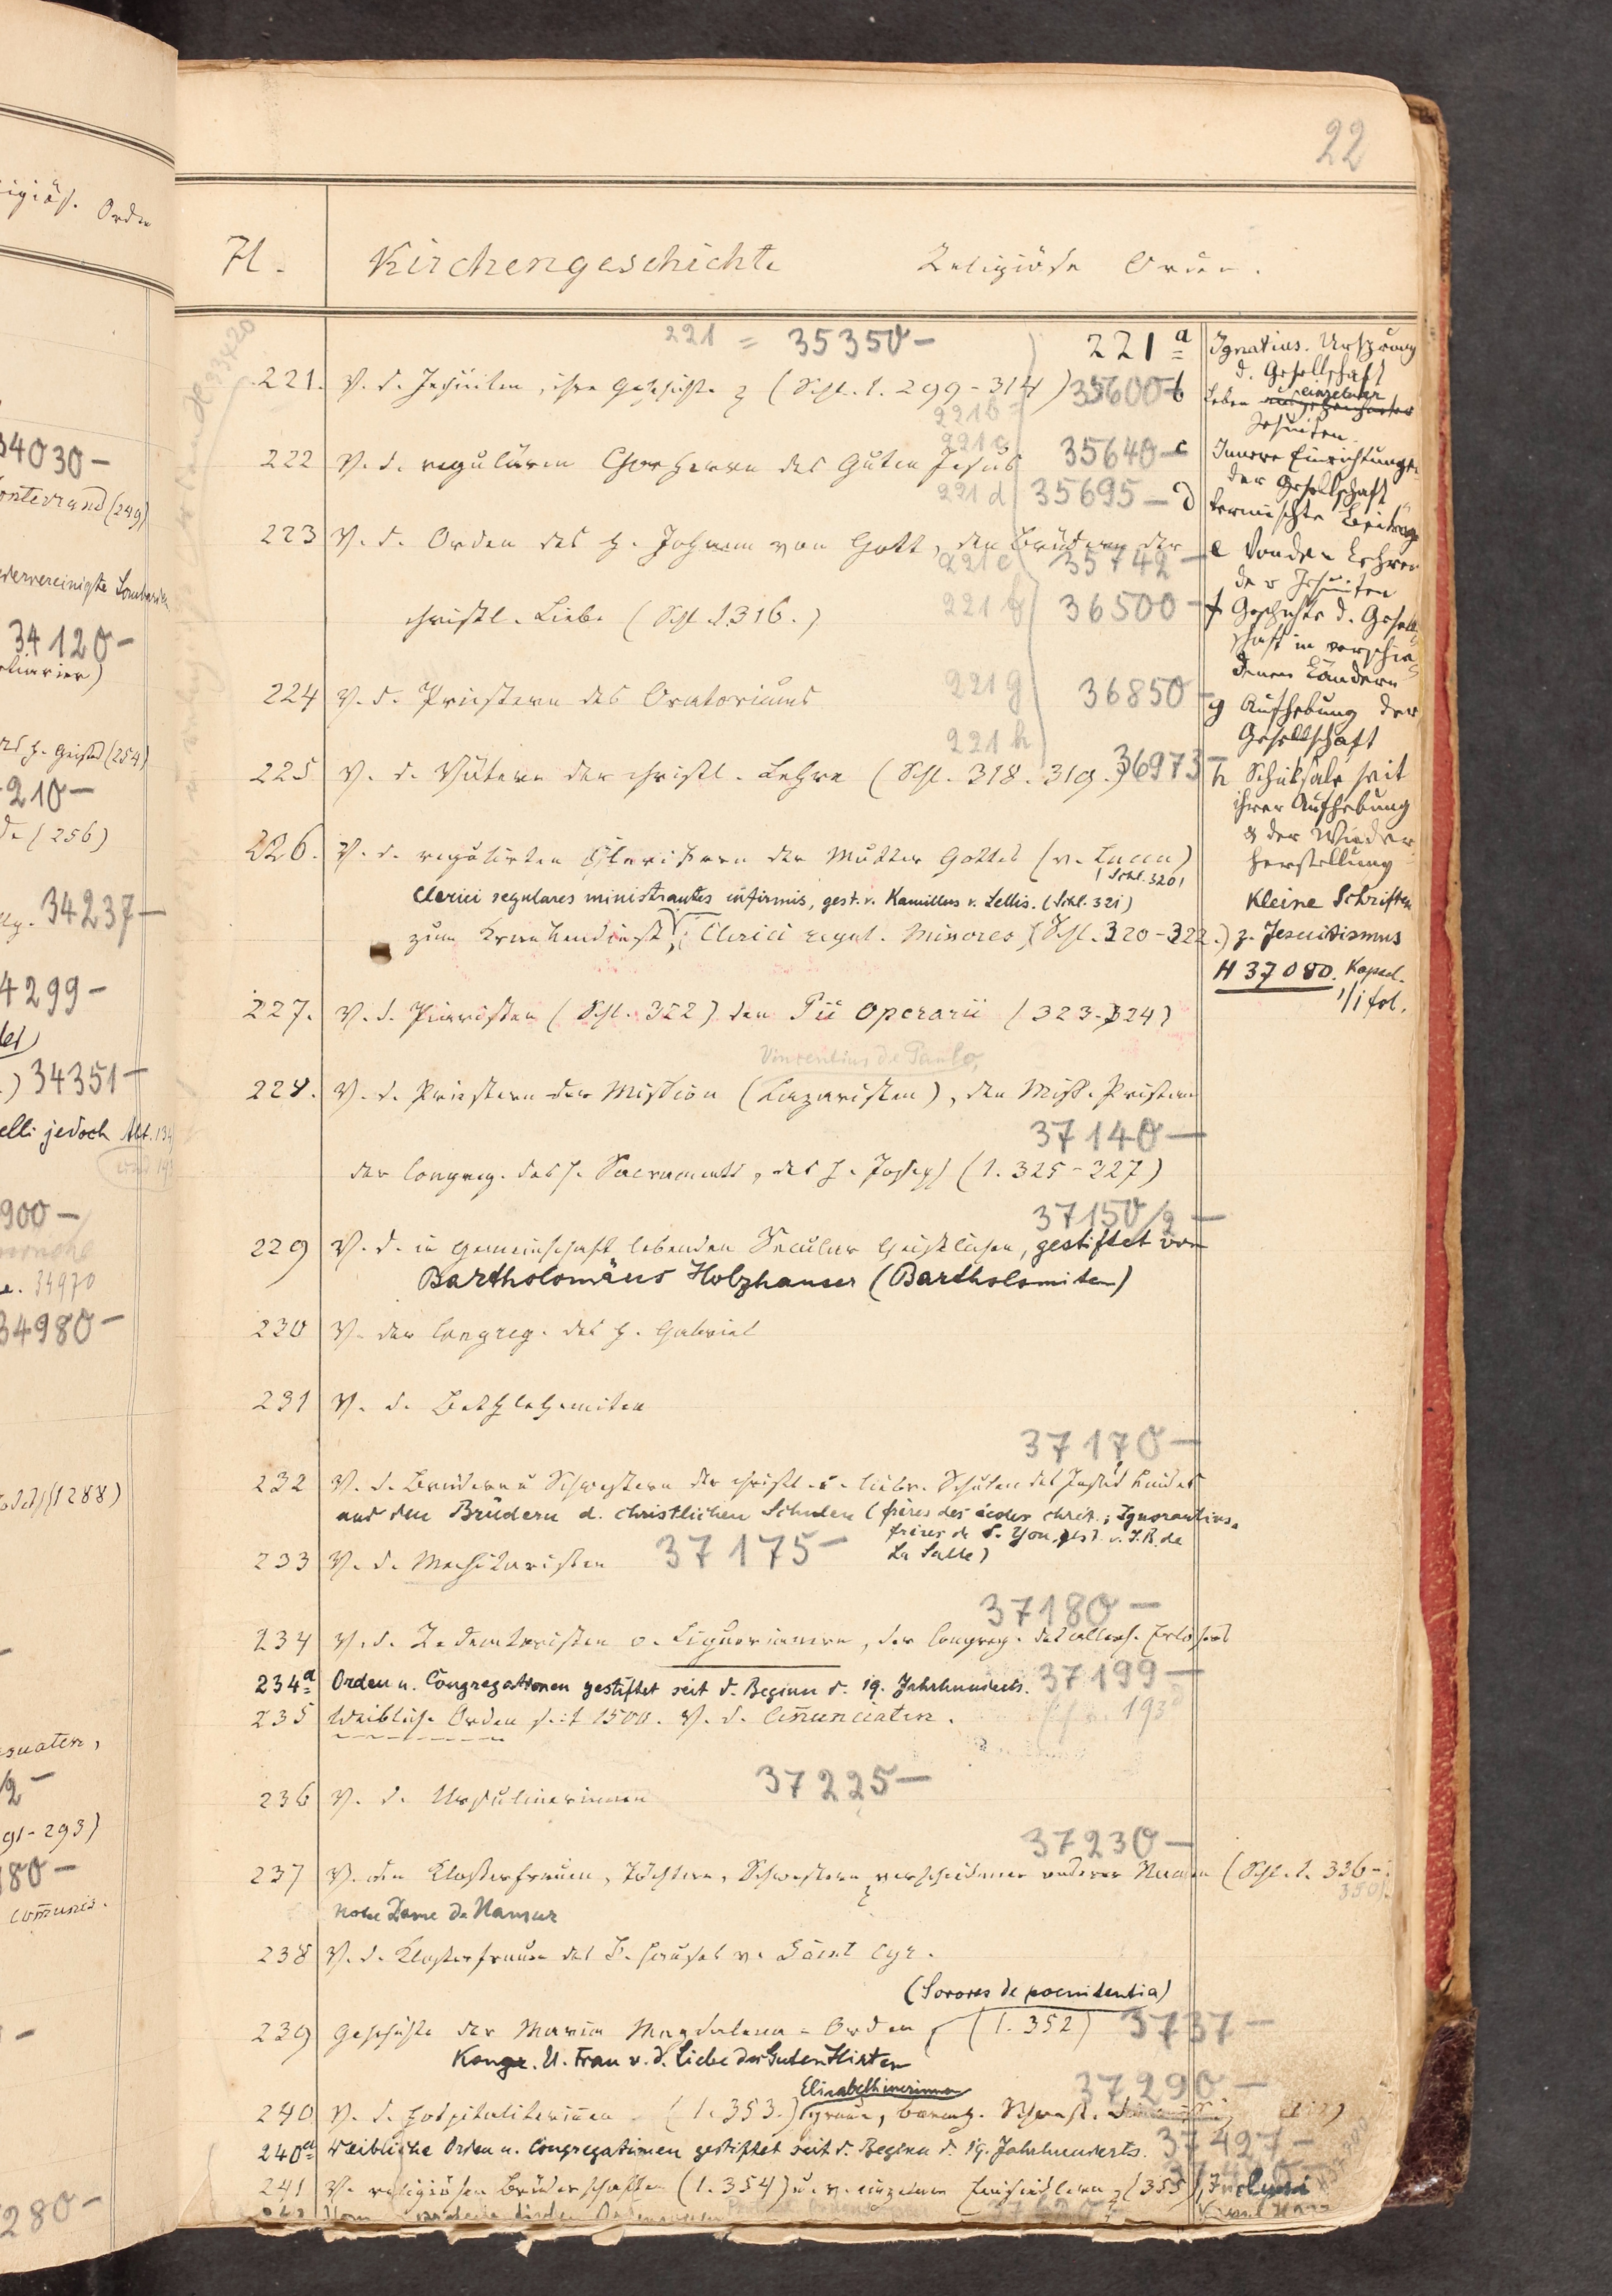 22
H. Kirchengeschichte Religiöse Orden.
221 = 35350- 221a Ignatius. Ursprung
d. Gesellschaft
221. V. d. Jesuiten, ihre Geschichte (Schl. 1. 299-314) 35600- b Leben einzelner
Jesuiten.
221b
221c
222 V. d. regulären Chorherrn des Guten Jesus 35640- c Innere Einrichtungen
der Gesellschaft
221d 35695- d Vermischte Beiträge
223 V. d. Orden des h. Johann von Gott, den Brüdern der
221e 35742- e Von den Lehren
der Jesuiten
christl. Liebe (Schl. 1316.) 221f 36500- f Geschichte d. Gesell
schaft in verschie
denen Ländern
224 V. d. Priestern des Oratoriums 221g 36850- g Aufhebung der
Gesellschaft
221h
225 V. d. Vätern der christl. Lehre (Schl. 318. 319.) 36973- h Schicksale seit
ihrer Aufhebung
& der Wieder
herstellung
226. V. d. regulirten Clerikern der Mutter Gottes (v. Lucca)
(Schl. 320)
Clerici regulares ministrantes infirmis, gest. v. Kamillus v. Lellis. (Schl. 321) Kleine Schriften
zum Krankendienst, (Clerici regul. Minores) (Schl. 320-322.) z. Jesuitismus
H 37080. Kapsel.
1/1 fol.
227. V. d. Piaristen (Schl. 322) den Pii Operarii (323-324)
Vincentius de Paulo,
228. V. d. Priestern der Mission (Lazaristen), den Miss. Priestern
37140-
der Congreg. des h. Sacraments, des h. Joseph (1. 325-327)
37150/2 -
229 V. d. in Gemeinschaft lebenden Secular Geistlichen, gestiftet von
Bartholomäus Holzhauser (Bartholomiten)
230 V. der Congreg. des h. Gabriel
231 V. d. Bethlehemiten
37170-
232 V. d. Brüdern u Schwestern der christl. u. liebr. Schulen des Jesus Kindes
und den Brüdern d. christlichen Schulen (frères des écoles chrét.; Ignorantins,
frères de S. Yon, gest. v. J. B. de
La Salle)
233 V. d. Mechitaristen 37175-
37180-
234 V. d. Redemtoristen o. Liguorianern, der Congreg. des allerh. Erlösers
234a Orden u. Congregationen gestiftet seit d. Beginn d. 19. Jahrhunderts. 37199-
235 Weibliche Orden seit 1500. V. d. Annunciaten.
236 V. d. Ursulinerinnen 37225-
37230-
237 V. den Klosterfrauen, Töchtern, Schwestern verschiedener anderer Namen (Schl. 1. 336-
350).
Notre Dame de Namur
238 V. d. Klosterfrauen des h. Hauses v. Saint Cyr.
(Sorores de poenitentia)
239 Geschichte der Maria Magdalena-Orden, (1. 352) 3737-
Kongr. U. Frau v. d. Liebe des Guten Hirten
Elisabethinerinnen 37290-
240 V. d. Hospitaliterinnen (1. 353.) graue, barmh. Schwest.
240a Weibliche Orden u. Congregationen gestiftet seit d. Beginn d. 19. Jahrhunderts. 37427-
241 V. religiösen Brüderschaften (1. 354) u. v. einzelnen Einsiedlern (355) Inclusi
34030-
34120-
210-
(256)
34237-
4299-
34351-
elli jedoch Abt. 134
900-
34970
34980-
280-